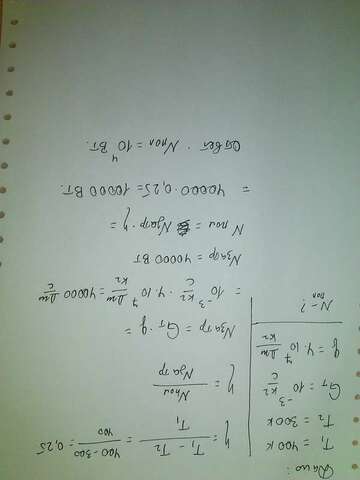 Дано:
T₁ = 400 К
T₂ = 300 К
Gₜ = 10⁻³ кг/с
q = 4·10⁷ Дж/кг
Nпол - ?
η = (T₁ - T₂)/T₁ = (400-300)/400 = 0,25
η = Nпол/Nзатр
Nзатр = Gₜ · q =
= 10⁻³ кг/с · 4·10⁷ Дж/кг = 40000 Дж/с
Nзатр = 40000 Вт
Nпол = Nзатр · η =
= 40000 · 0,25 = 10000 Вт.
Ответ · Nпол = 10⁴ Вт.